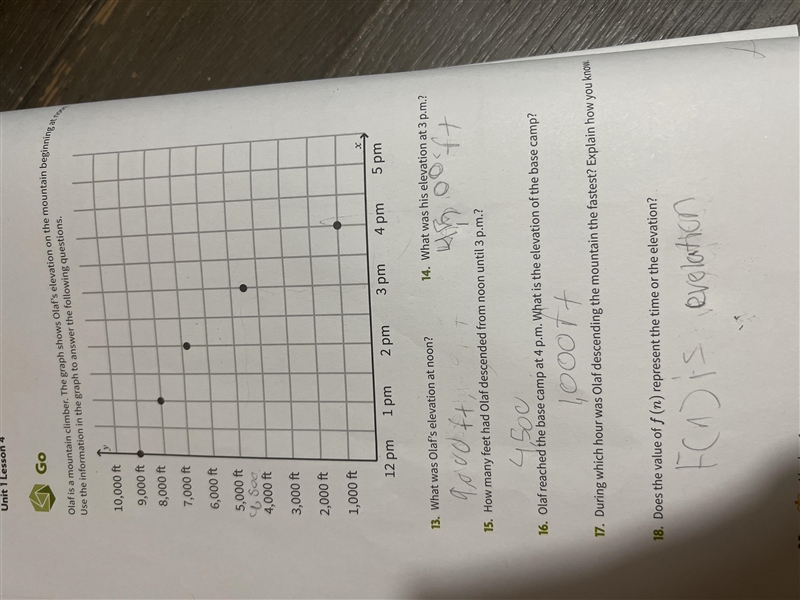 Unit 1 Lesson 4
Go
Olaf is a mountain climber. The graph shows Olaf's elevation on the mountain beginning at noon.
Use the information in the graph to answer the following questions.
y
10,000 ft
9,000 ft
8,000 ft
7,000 ft
6,000 ft
5,000 ft
4,000 ft
3,000 ft
2,000 ft
1,000 ft
x
12 pm 1 pm 2 pm 3 pm 4 pm 5 pm
13. What was Olaf's elevation at noon?
9,000 ft,
14. What was his elevation at 3 p.m.?
15. How many feet had Olaf descended from noon until 3 p.m.?
4,500
16. Olaf reached the base camp at 4 p.m. What is the elevation of the base camp?
1,000 ft
17. During which hour was Olaf descending the mountain the fastest? Explain how you know.
18. Does the value of f (n) represent the time or the elevation?
F(n) is evelation